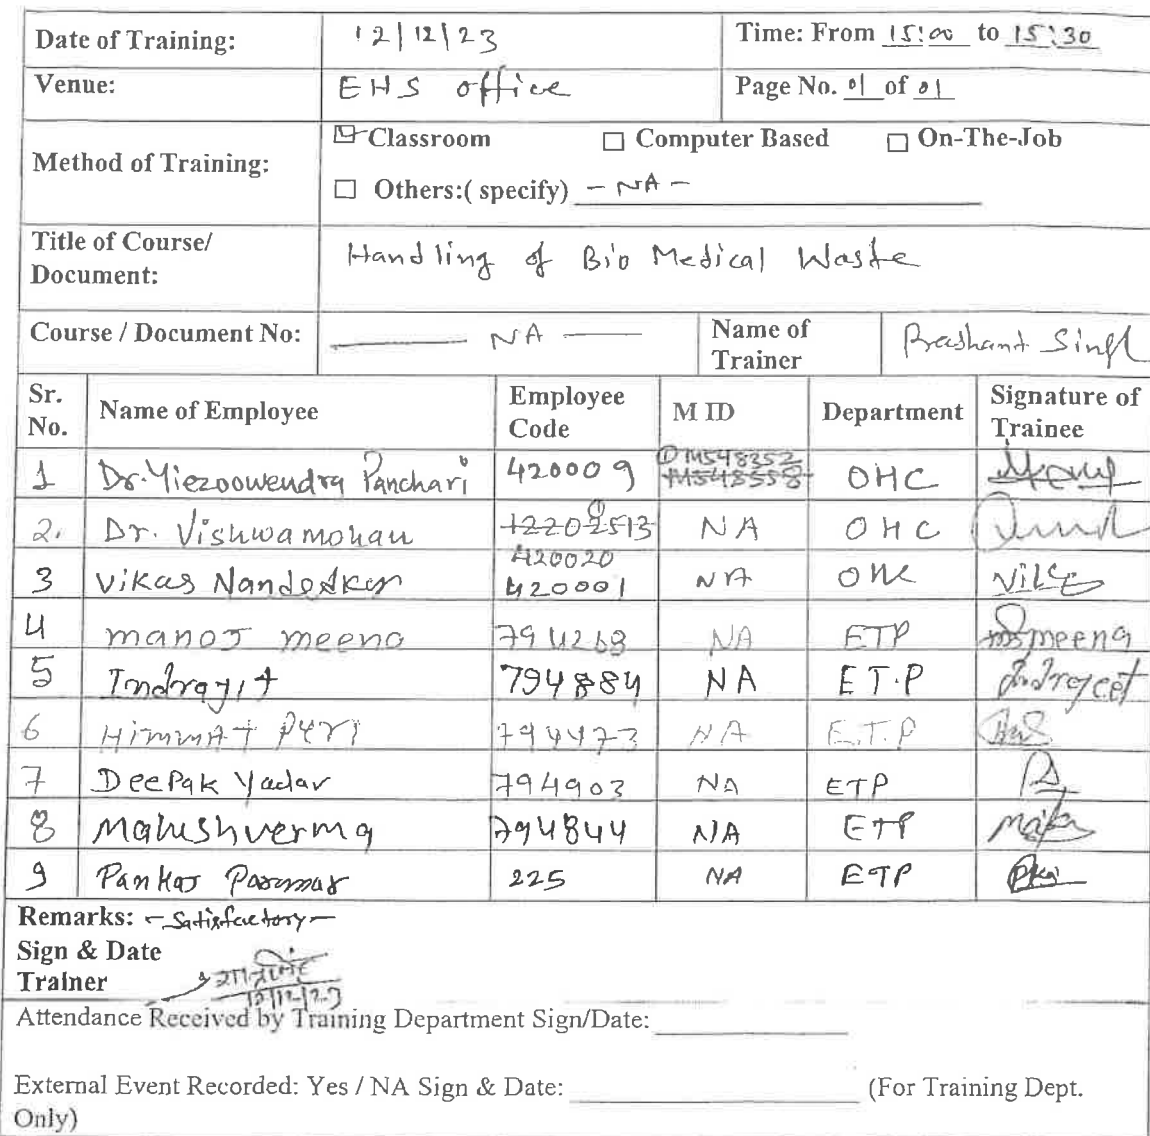 Date of Training: 12/12/23 Time: From 15:00 to 15:30
Venue: EHS office Page No. 01 of 01
Method of Training: Classroom Computer Based On-The-Job
Others:( specify) - NA -
Title of Course/
Document: Handling of Bio Medical Waste
Course / Document No: NA Name of
Trainer Prashant Singh
Sr.
No. Name of Employee Employee
Code M ID Department Signature of
Trainee
1 Dr. Panchari 420009 M548352 OHC
2. Dr. Vishwamohan 12202513 420020 NA OHC
3 Vikas 420001 NA OHC
4 manoj meena 794268 NA ETP msmeena
5 Indrajit 794884 NA ET.P Indrajeet
6 Himmat 794473 NA E.T.P
7 Deepak Yadav 794903 NA ETP
8 Mahesh verma 794844 NA ETP
9 Pankaj Parmar 225 NA ETP
Remarks: - Satisfactory -
Sign & Date
Trainer 12/12/23
Attendance Received by Training Department Sign/Date:
External Event Recorded: Yes / NA Sign & Date: (For Training Dept.
Only)